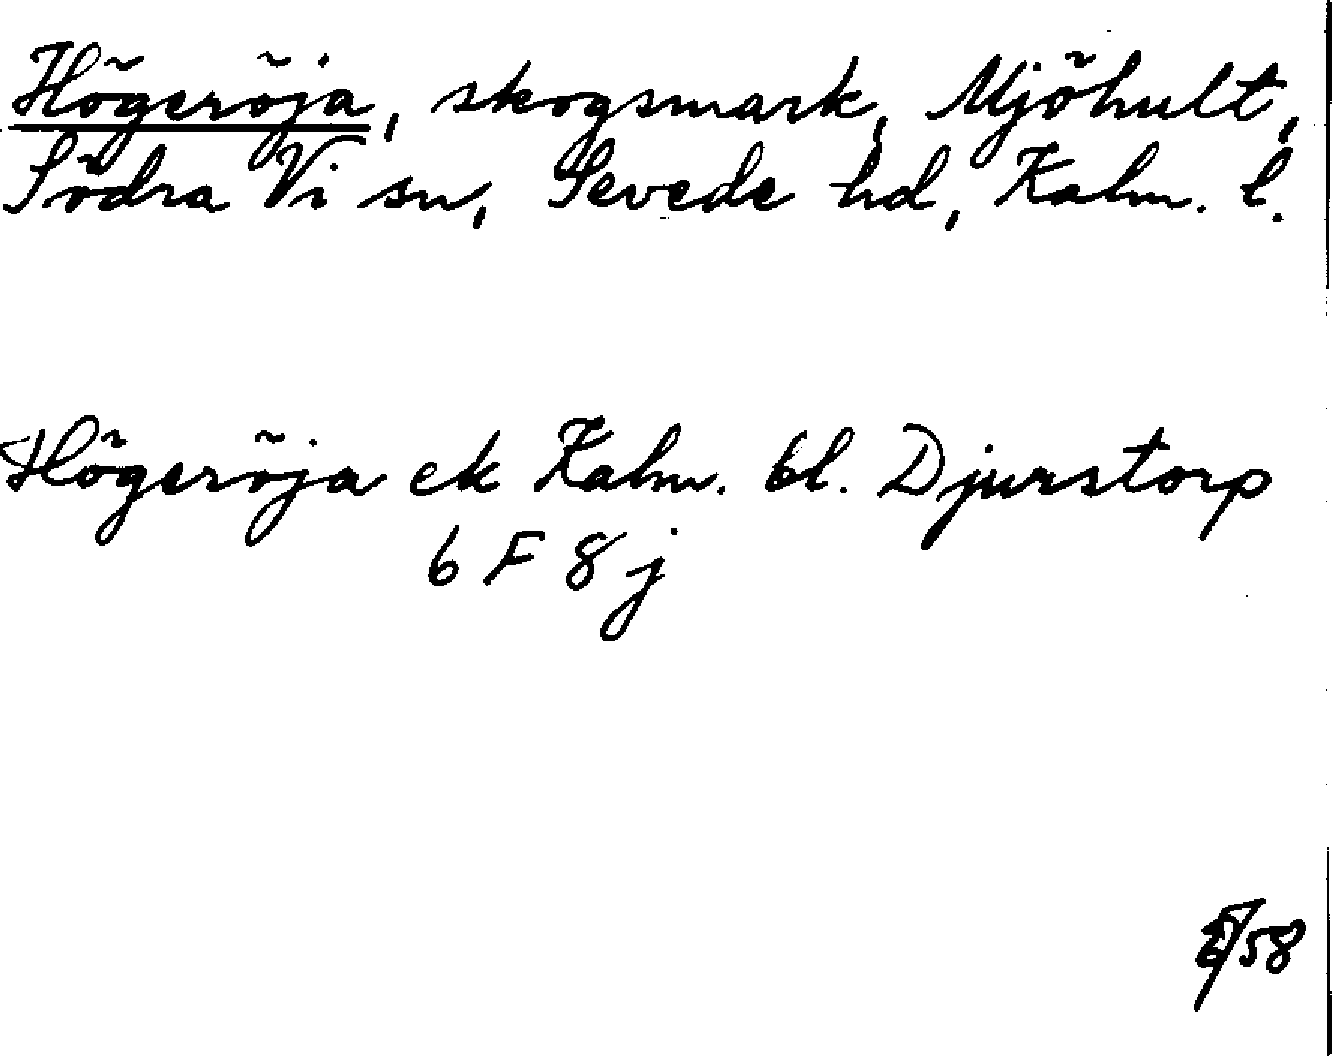 Högeröja, skogsmark, Mjöhult,
Södra Vi sn, Sevede hd, Kalm. l.
Högeröja ek Kalm. bl. Djurstorp
6 F 8 j